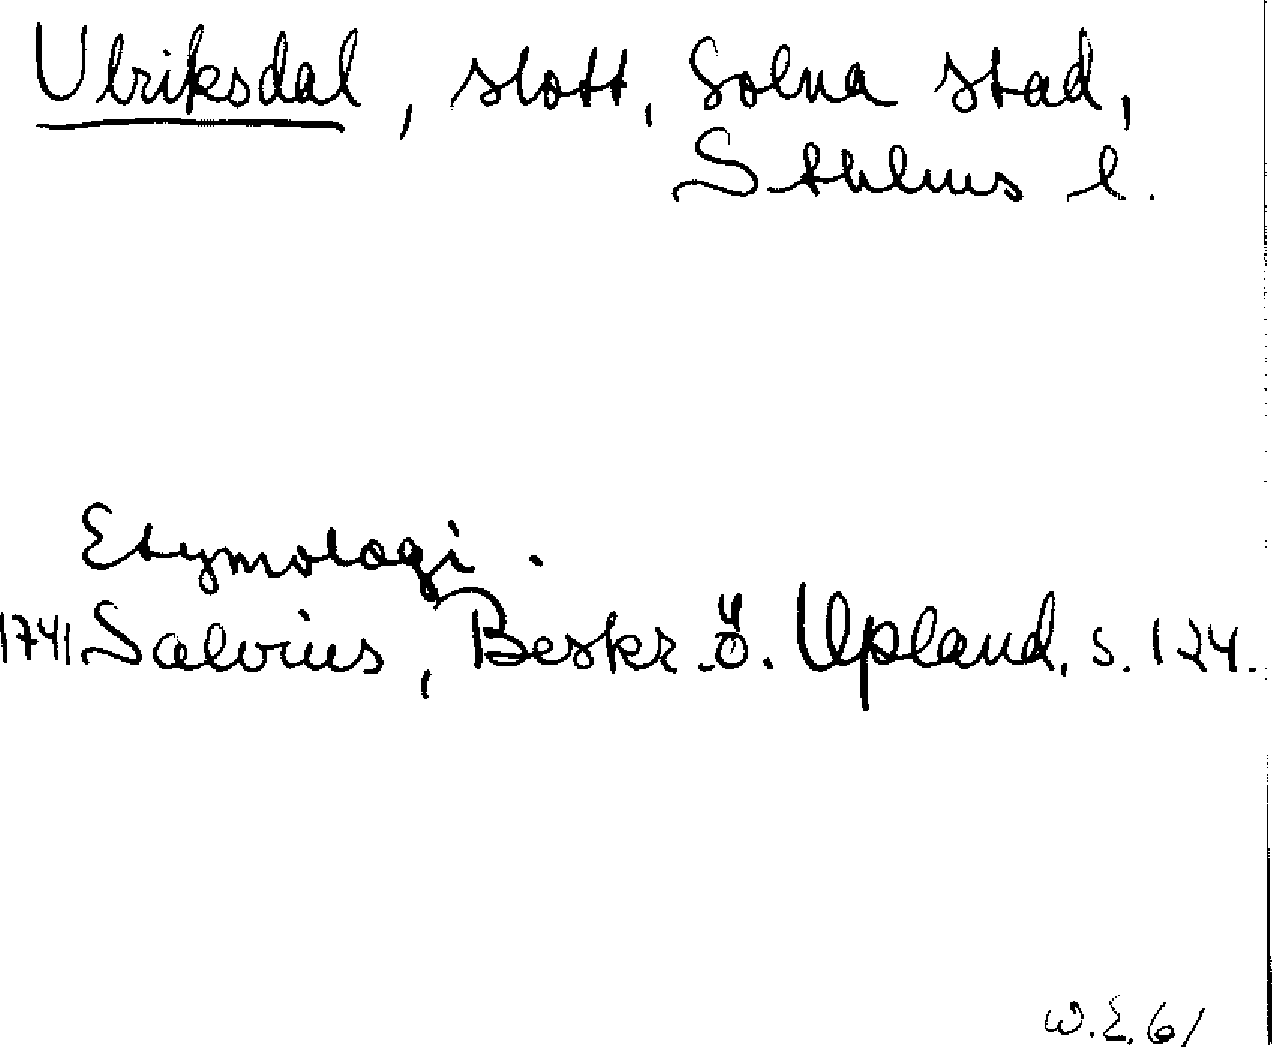 Ulriksdal, slott, Solna stad,
Sthlms l.
Etymologi.
1741 Salvius, Beskr. ö. Upland, s. 124.
W.E. 61